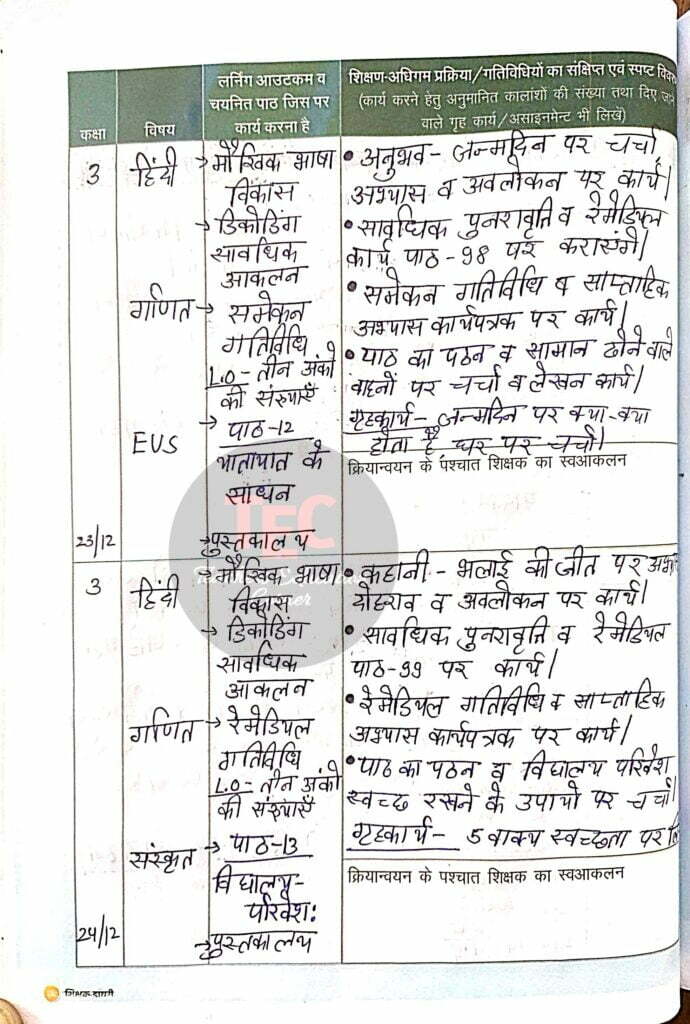 कक्षा
विषय
लर्निंग आउटकम व
चयनित पाठ जिस पर
कार्य करना है
शिक्षण-अधिगम प्रक्रिया/गतिविधियों का संक्षिप्त एवं स्पष्ट
(कार्य करने हेतु अनुमानित कालांशों की संख्या तथा दिए
वाले गृह कार्य/असाइनमेंट भी लिखें)
3
हिंदी
→ मौखिक भाषा
विकास
→ डिकोडिंग
सावधिक
आकलन
गणित → समेकन
गतिविधि
L.O- तीन अंको
की संख्याएँ
EVS
→ पाठ-12
यातायात के
साधन
→ पुस्तकालय
23/12
• अनुभव- जन्मदिन पर चर्चा,
अभ्यास व अवलोकन पर कार्य।
• सावधिक पुनरावृति व रेमेडियल
कार्य पाठ-98 पर करासंगे।
• समेकन गतिविधि व साप्ताहिक
अभ्यास कार्यपत्रक पर कार्य।
• पाठ का पठन व सामान ढोने वाले
वाहनों पर चर्चा व लेखन कार्य।
गृहकार्य- जन्मदिन पर क्या-क्या
होता है घर पर चर्चा।
क्रियान्वयन के पश्चात शिक्षक का स्वआकलन
TEC
3
हिंदी
→ मौखिक भाषा
विकास
→ डिकोडिंग
सावधिक
आकलन
गणित → रेमेडियल
गतिविधि
L.O- तीन अंको
की संख्याएँ
संस्कृत → पाठ-13
विद्यालय-
परिवेश:
→ पुस्तकालय
24/12
• कहानी - भलाई की जीत पर
दोहराव व अवलोकन पर कार्य।
• सावधिक पुनरावृति व रेमेडियल
पाठ-99 पर कार्य।
• रेमेडियल गतिविधि व साप्ताहिक
अभ्यास कार्यपत्रक पर कार्य।
• पाठ का पठन व विद्यालय परिवेश
स्वच्छ रखने के उपायो पर चर्चा।
गृहकार्य- 5 वाक्य स्वच्छता पर
क्रियान्वयन के पश्चात शिक्षक का स्वआकलन
शिक्षक डायरी